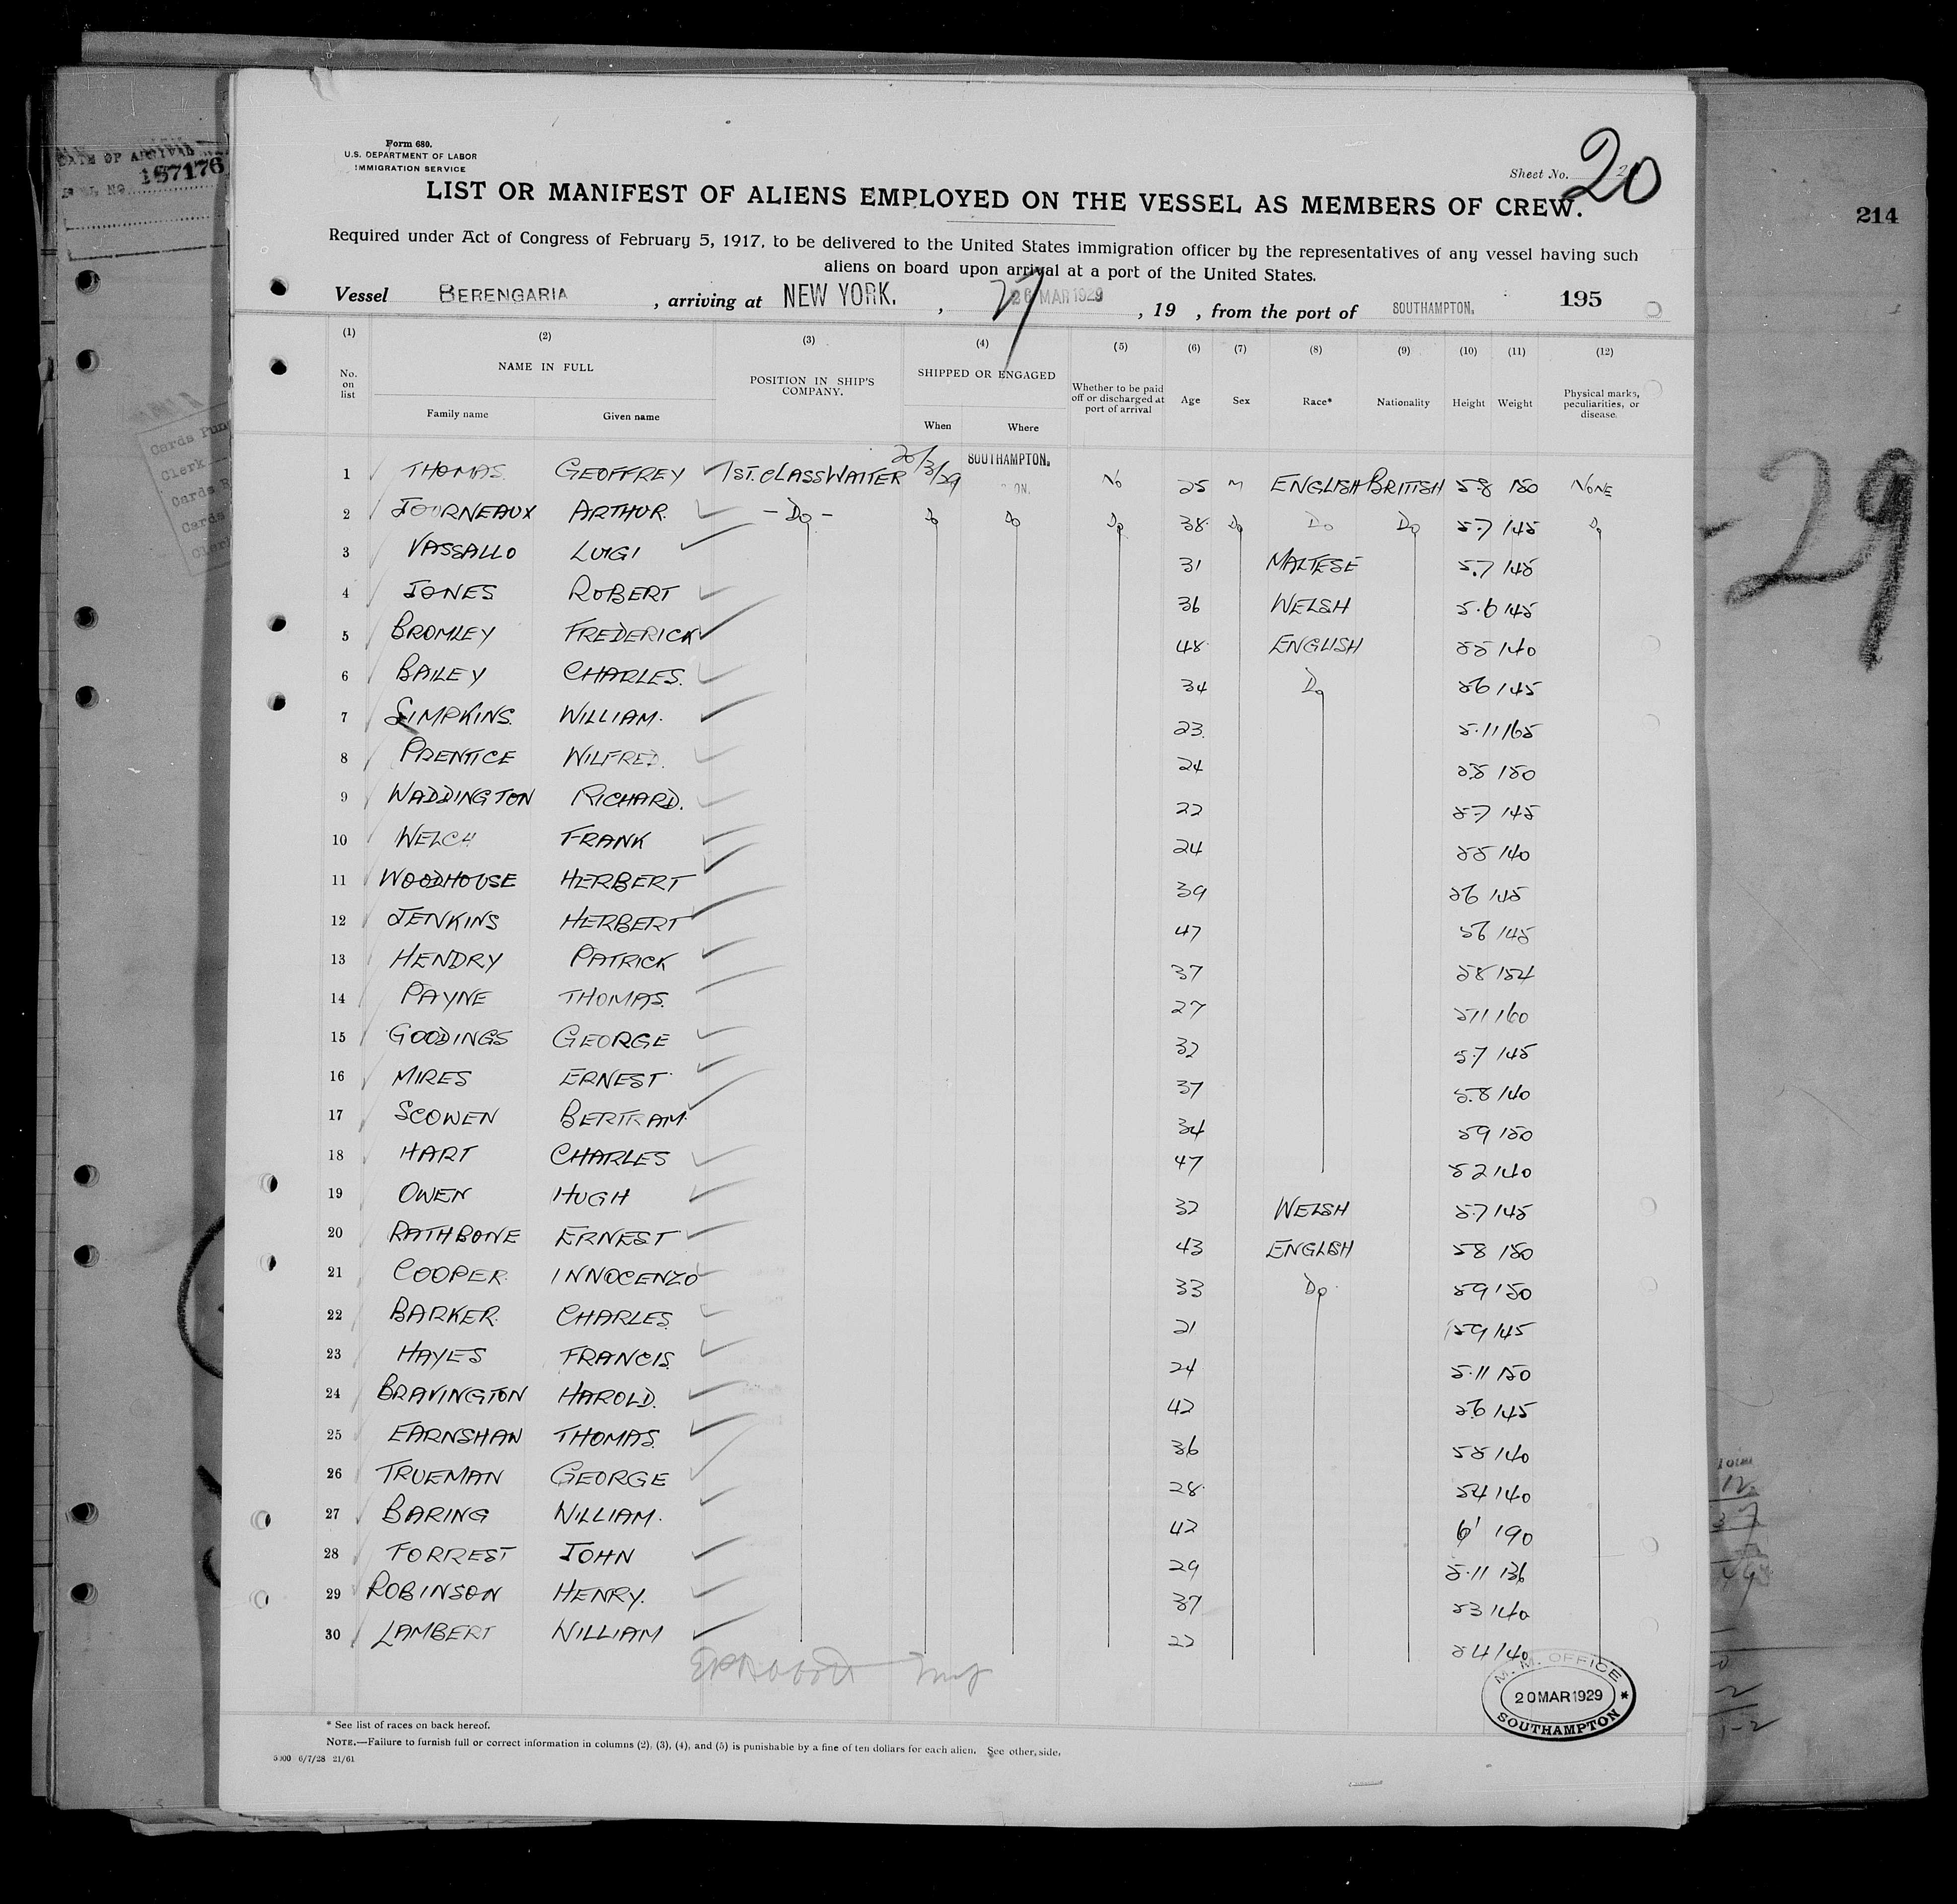 DATE OF ARRIVAL
157176
Form 689.
U.S. DEPARTMENT OF LABOR
IMMIGRATION SERVICE
Sheet No. 20
LIST OR MANIFEST OF ALIENS EMPLOYED ON THE VESSEL AS MEMBERS OF CREW.
214
Required under Act of Congress of February 5, 1917, to be delivered to the United States immigration officer by the representatives of any vessel having such
aliens on board upon arrival at a port of the United States.
Vessel BERENGARIA, arriving at NEW YORK., 26 MAR 1929 27, 19 , from the port of SOUTHAMPTON. 195
(1) (2) (3) (4) (5) (6) (7) (8) (9) (10) (11) (12)
No. on list NAME IN FULL POSITION IN SHIP'S COMPANY. SHIPPED OR ENGAGED Whether to be paid off or discharged at port of arrival Age Sex Race* Nationality Height Weight Physical marks, peculiarities, or disease.
Family name Given name When Where
1 THOMAS GEOFFREY 1ST. CLASS WAITER 20/3/29 SOUTHAMPTON. No 25 M ENGLISH BRITISH 5.8 150 NONE
2 JOURNEAUX ARTHUR - Do - Do Do Do 38 Do Do Do 5.7 145 Do
3 VASSALLO LUIGI 31 MALTESE 5.7 145
4 JONES ROBERT 36 WELSH 5.6 145
5 BROMLEY FREDERICK 48 ENGLISH 55 140
6 BAILEY CHARLES. 34 Do 56 145
7 SIMPKINS. WILLIAM. 23 5.11 165
8 PRENTICE WILFRED. 24 5.8 150
9 WADDINGTON RICHARD. 22 5.7 145
10 WELCH FRANK 24 55 140
11 WOODHOUSE HERBERT 39 56 145
12 JENKINS HERBERT 47 56 145
13 HENDRY PATRICK 37 58 154
14 PAYNE THOMAS. 27 511 160
15 GOODINGS GEORGE 32 5.7 145
16 MIRES ERNEST 37 5.8 140
17 SCOWEN BERTRAM. 34 59 150
18 HART CHARLES 47 52 140
19 OWEN HUGH 32 WELSH 5.7 145
20 RATHBONE ERNEST 43 ENGLISH 58 150
21 COOPER. INNOCENZO 33 Do 59 150
22 BARKER. CHARLES. 21 59 145
23 HAYES FRANCIS. 24 5.11 150
24 BRAVINGTON HAROLD. 42 5.6 145
25 EARNSHAW THOMAS. 36 55 140
26 TRUEMAN GEORGE 28 54 140
27 BARING WILLIAM. 42 6' 190
28 FORREST JOHN 29 5.11 136
29 ROBINSON HENRY. 37 53 140
30 LAMBERT WILLIAM 22 54 140
M. M. OFFICE
20 MAR 1929
SOUTHAMPTON
* See list of races on back hereof.
NOTE.—Failure to furnish full or correct information in columns (2), (3), (4), and (5) is punishable by a fine of ten dollars for each alien. See other side.
5000 6/7/28 21/61
-29